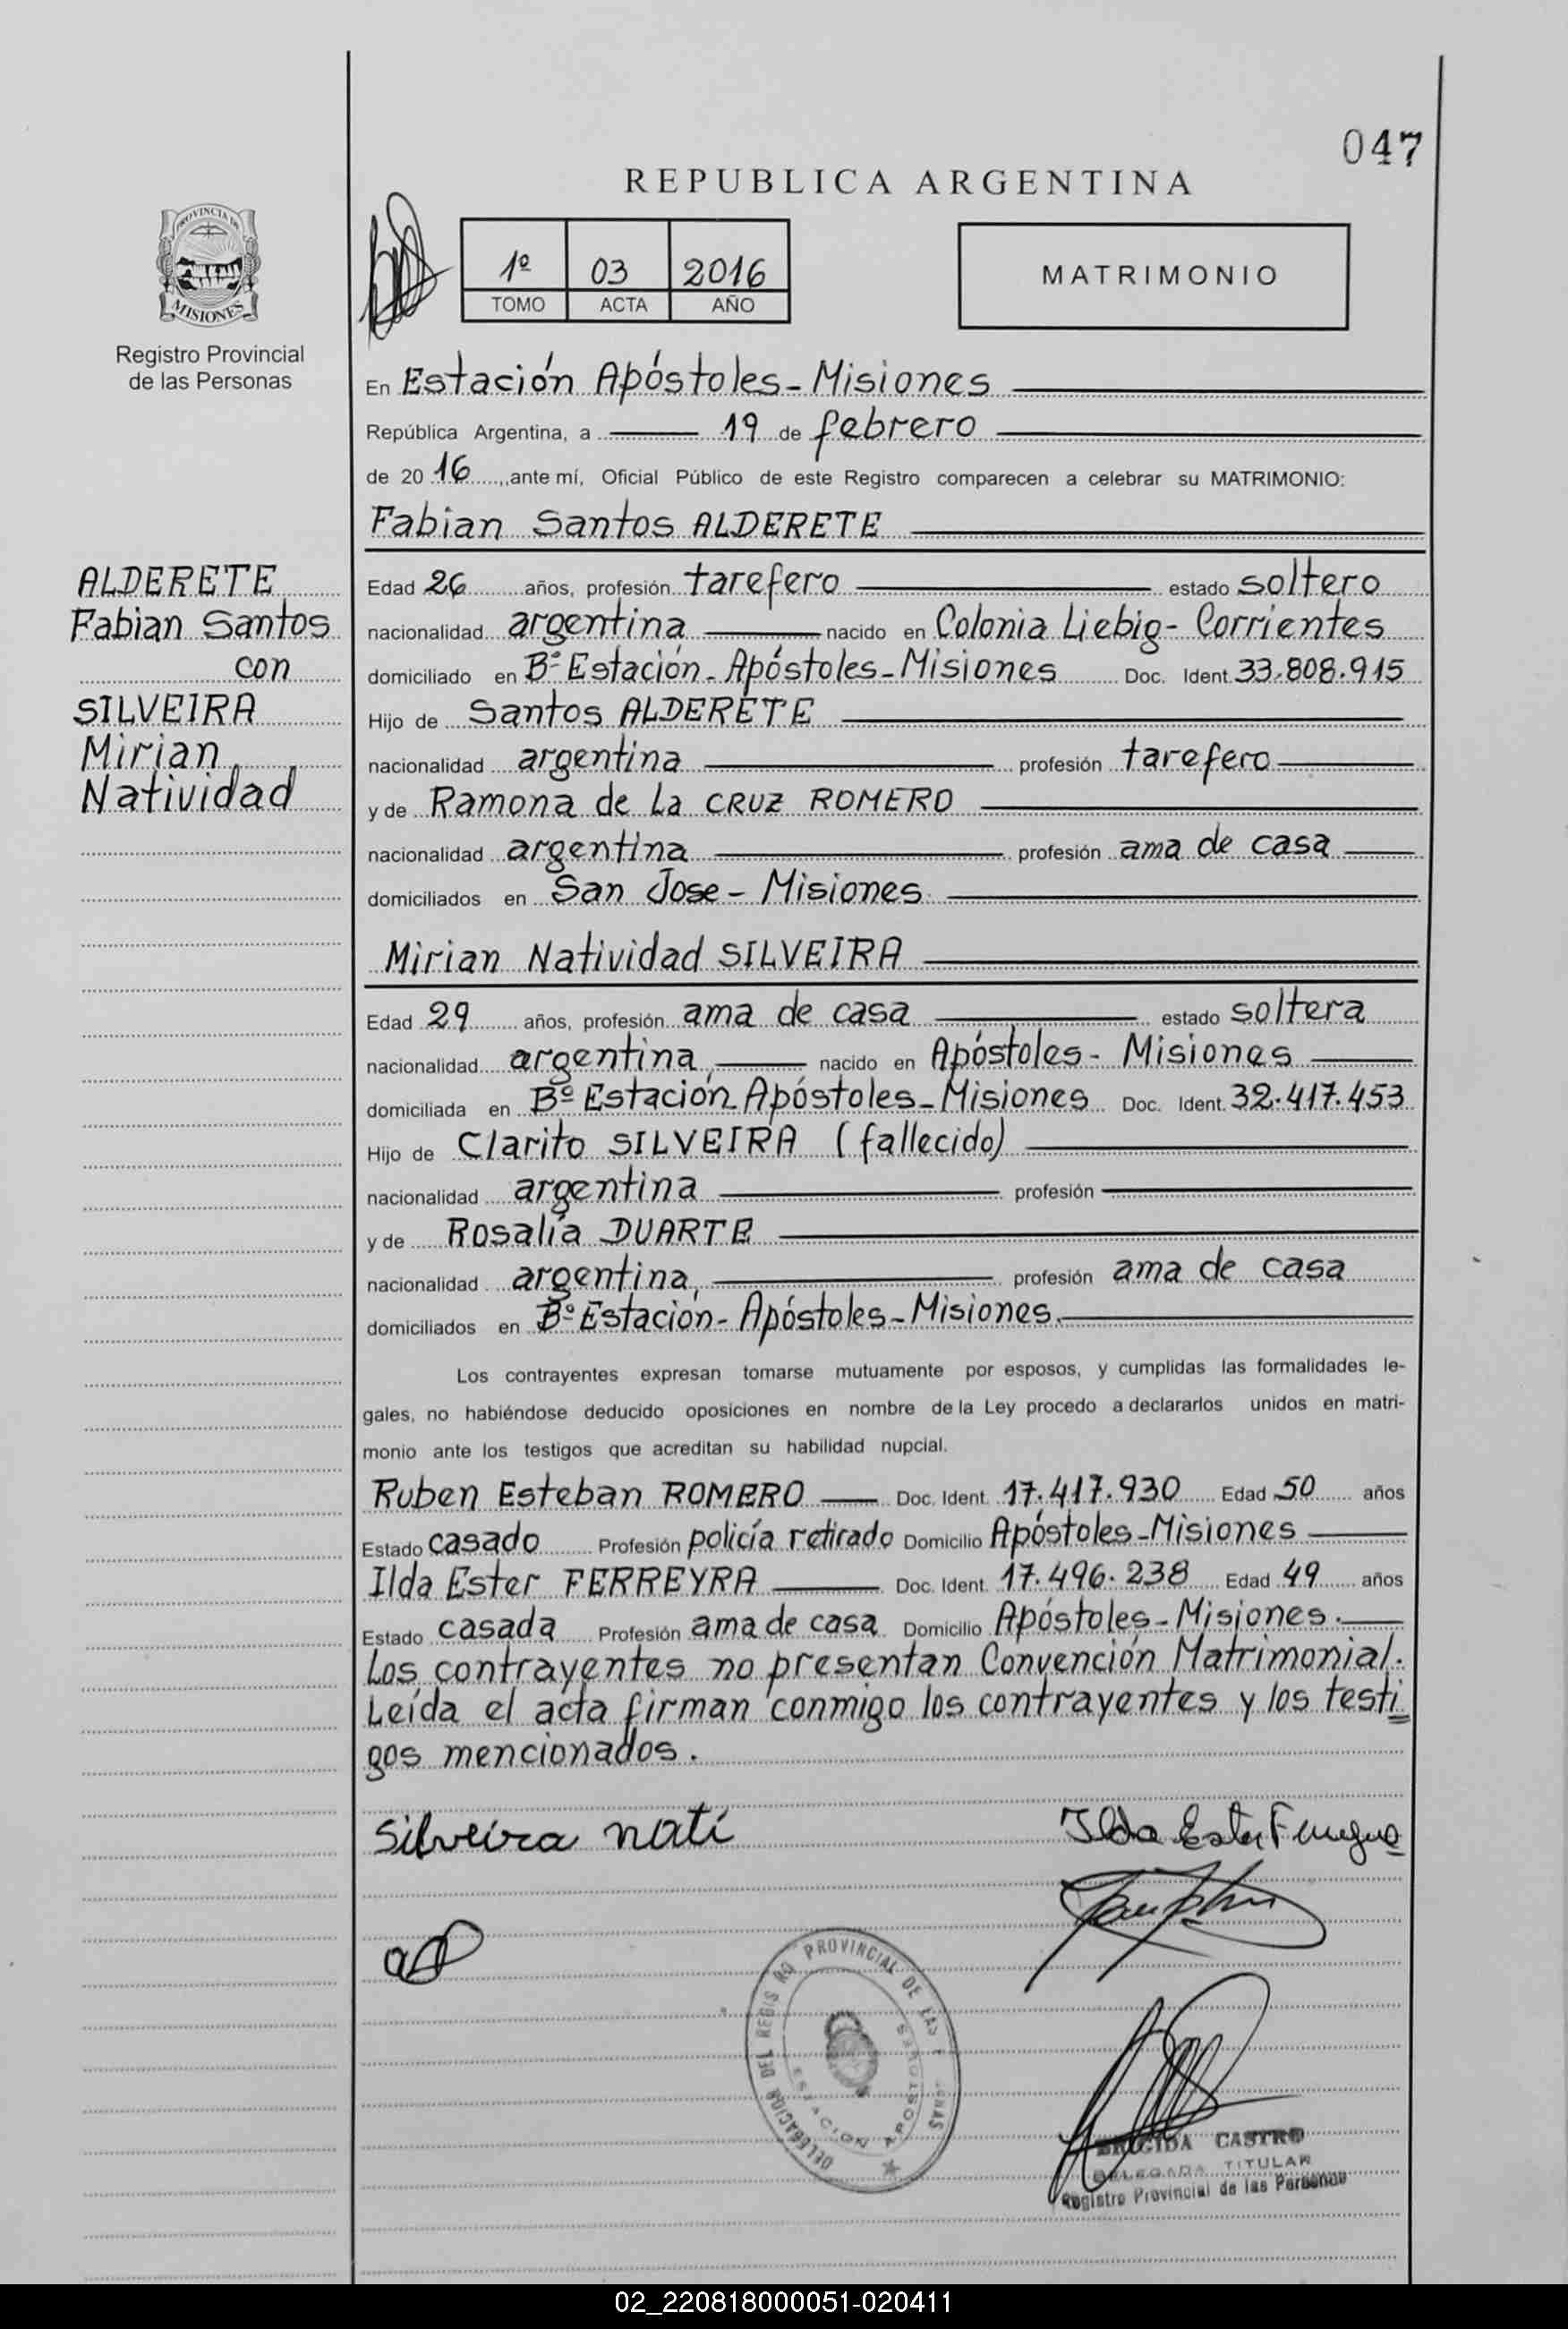 047
REPUBLICA ARGENTINA
PROVINCIA DE
MISIONES
Registro Provincial
de las Personas
1º 03 2016
TOMO ACTA AÑO
MATRIMONIO
En Estación Apóstoles-Misiones
República Argentina, a 19 de febrero
de 2016, ante mí, Oficial Público de este Registro comparecen a celebrar su MATRIMONIO:
Fabian Santos ALDERETE
ALDERETE
Fabian Santos
con
SILVEIRA
Mirian
Natividad
Edad 26 años, profesión tarefero estado soltero
nacionalidad argentina nacido en Colonia Liebig- Corrientes
domiciliado en Bº Estación-Apóstoles-Misiones Doc. Ident. 33.808.915
Hijo de Santos ALDERETE
nacionalidad argentina profesión tarefero
y de Ramona de La CRUZ ROMERO
nacionalidad argentina profesión ama de casa
domiciliados en San Jose - Misiones
Mirian Natividad SILVEIRA
Edad 29 años, profesión ama de casa estado soltera
nacionalidad argentina, nacido en Apóstoles- Misiones
domiciliada en Bº Estación-Apóstoles-Misiones Doc. Ident. 32.417.453
Hijo de Clarito SILVEIRA (fallecido)
nacionalidad argentina profesión
y de Rosalía DUARTE
nacionalidad argentina, profesión ama de casa
domiciliados en Bº Estación- Apóstoles-Misiones.
Los contrayentes expresan tomarse mutuamente por esposos, y cumplidas las formalidades le-
gales, no habiéndose deducido oposiciones en nombre de la Ley procedo a declararlos unidos en matri-
monio ante los testigos que acreditan su habilidad nupcial.
Ruben Esteban ROMERO Doc. Ident. 17.417.930 Edad 50 años
Estado casado Profesión policía retirado Domicilio Apóstoles-Misiones
Ilda Ester FERREYRA Doc. Ident. 17.496.238 Edad 49 años
Estado casada Profesión ama de casa Domicilio Apóstoles-Misiones.
Los contrayentes no presentan Convención Matrimonial.
Leída el acta firman conmigo los contrayentes y los testi
gos mencionados.
Silveira nati
Ilda Ester
DELEGACION DEL REGISRO PROVINCIAL DE LAS
ESTACION APOSTOLES
BRIGIDA CASTRO
DELEGADA TITULAR
Registro Provincial de las Personas
02_220818000051-020411